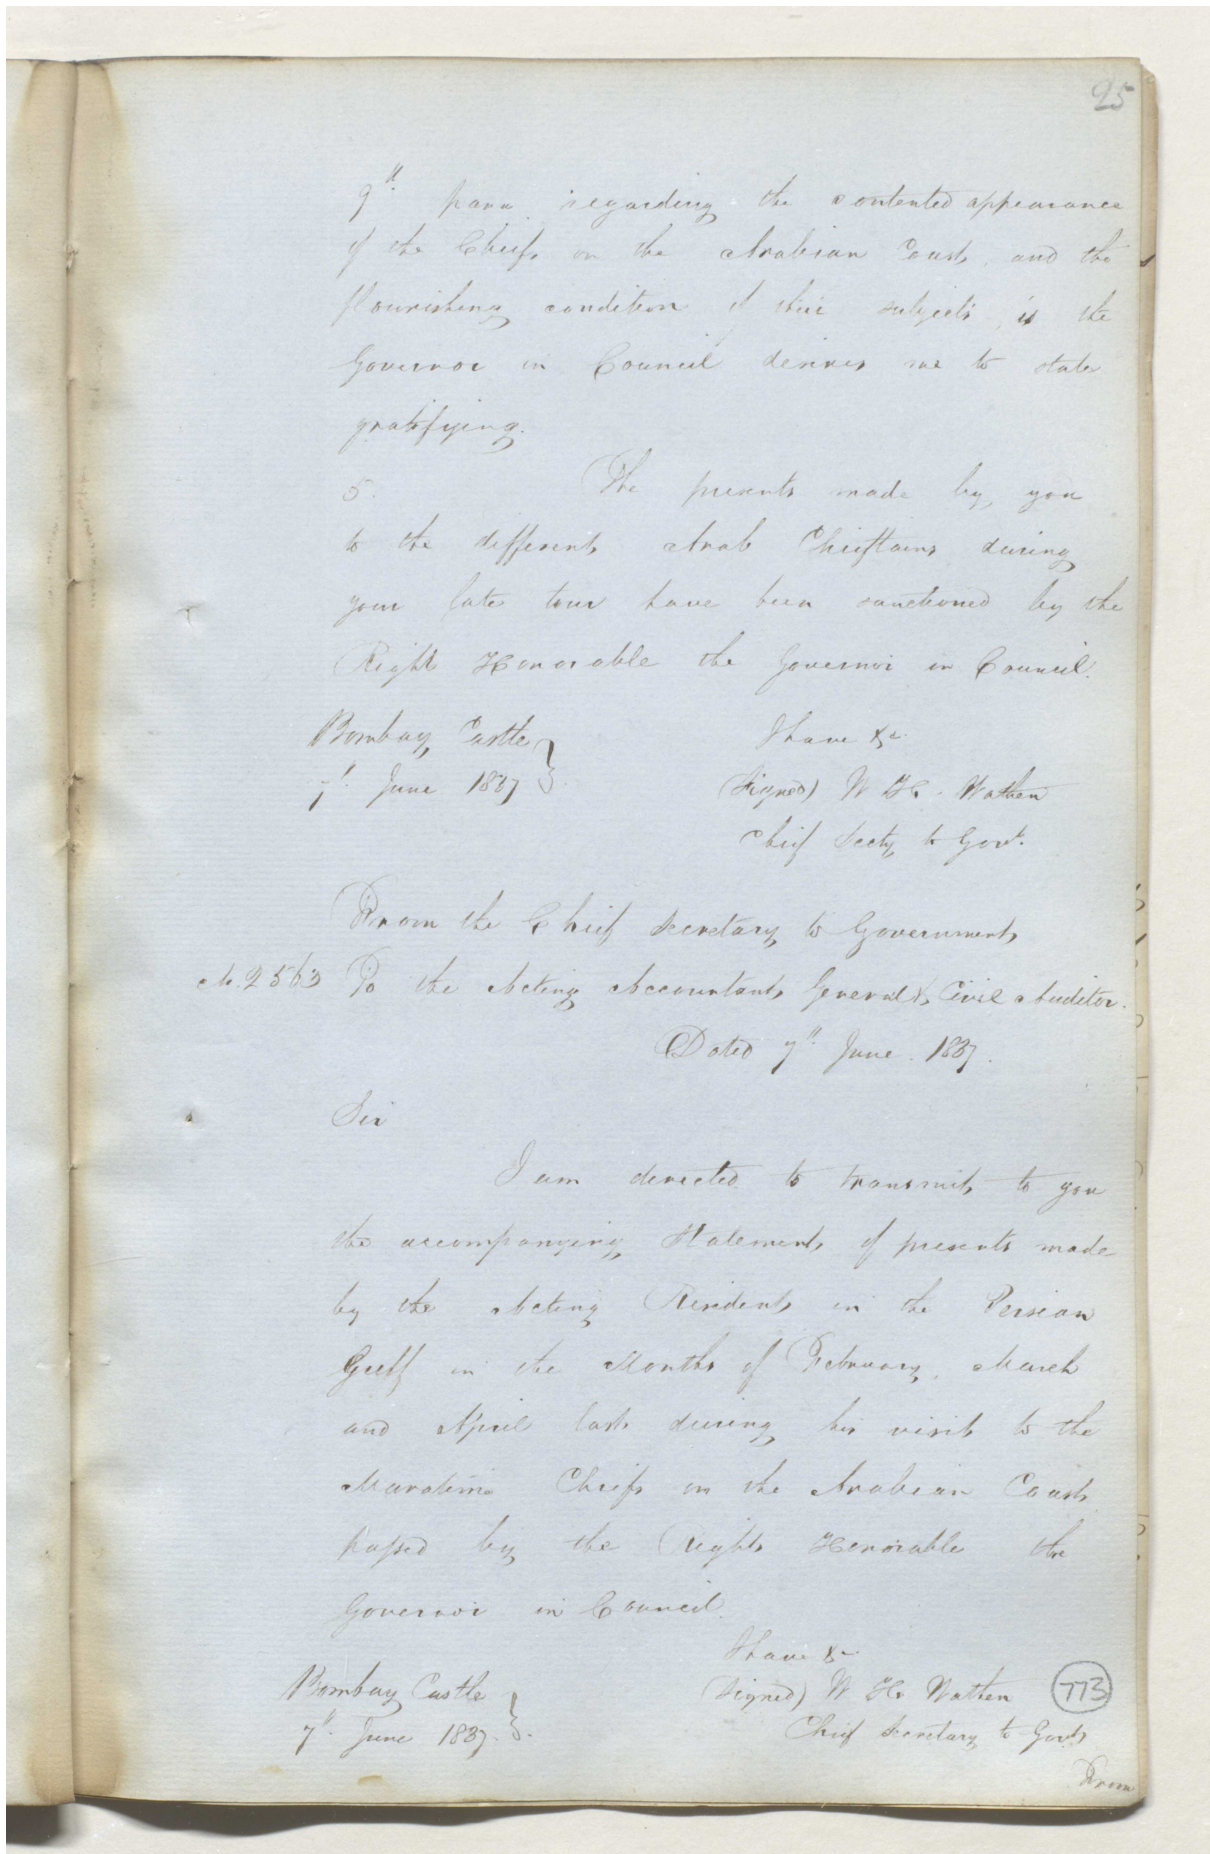 25
9th para regarding the contented appearance
of the Chiefs on the Arabian Coast, and the
flourishing condition of their subjects, is the
Governor in Council desires me to state
gratifying.
5. The presents made by you
to the different Arab Chieftains during
your late tour have been sanctioned by the
Right Honorable the Governor in Council.
Bombay Castle } I have &c
7th June 1837 } (Signed) W H. Wathen
Chief Secty to Govt.
From the Chief Secretary to Government
No. 2563 To the Acting Accountant General & Civil Auditor.
Dated 7th June 1837.
Sir
I am directed to transmit to you
the accompanying Statement of presents made
by the Acting Resident in the Persian
Gulf in the Months of February, March
and April last during his visit to the
Maratime Chiefs on the Arabian Coast
passed by the Right Honorable the
Governor in Council.
I have &c
Bombay Castle } (Signed) W H. Wathen 773
7th June 1837. } Chief Secretary to Govt
From